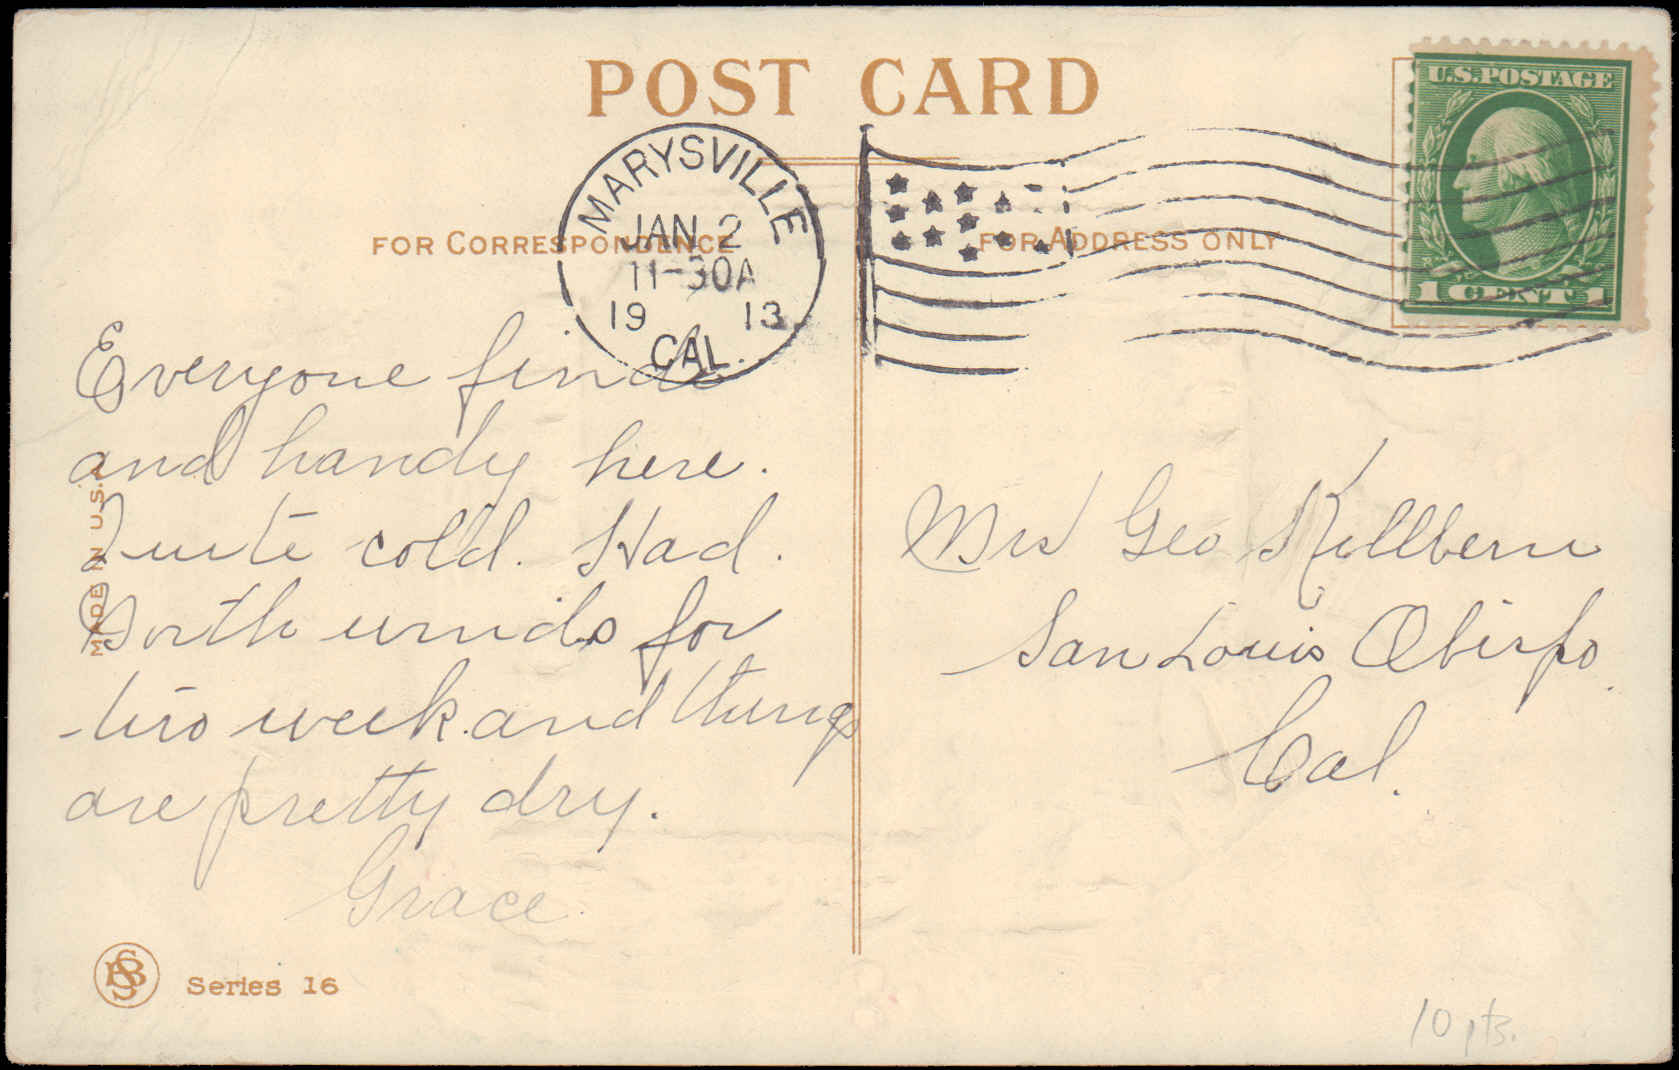 POST CARD
U.S. POSTAGE
1 CENT 1
MARYSVILLE
JAN 2
11-30A
19 13
CAL.
FOR CORRESPONDENCE
FOR ADDRESS ONLY
Everyone fine
and handy here.
Quite cold. Had.
North winds for
two week and things
are pretty dry.
Grace
Mrs Geo Killbern
San Louis Obispo
Cal.
MADE IN U.S.A.
Series 16
10 pts.